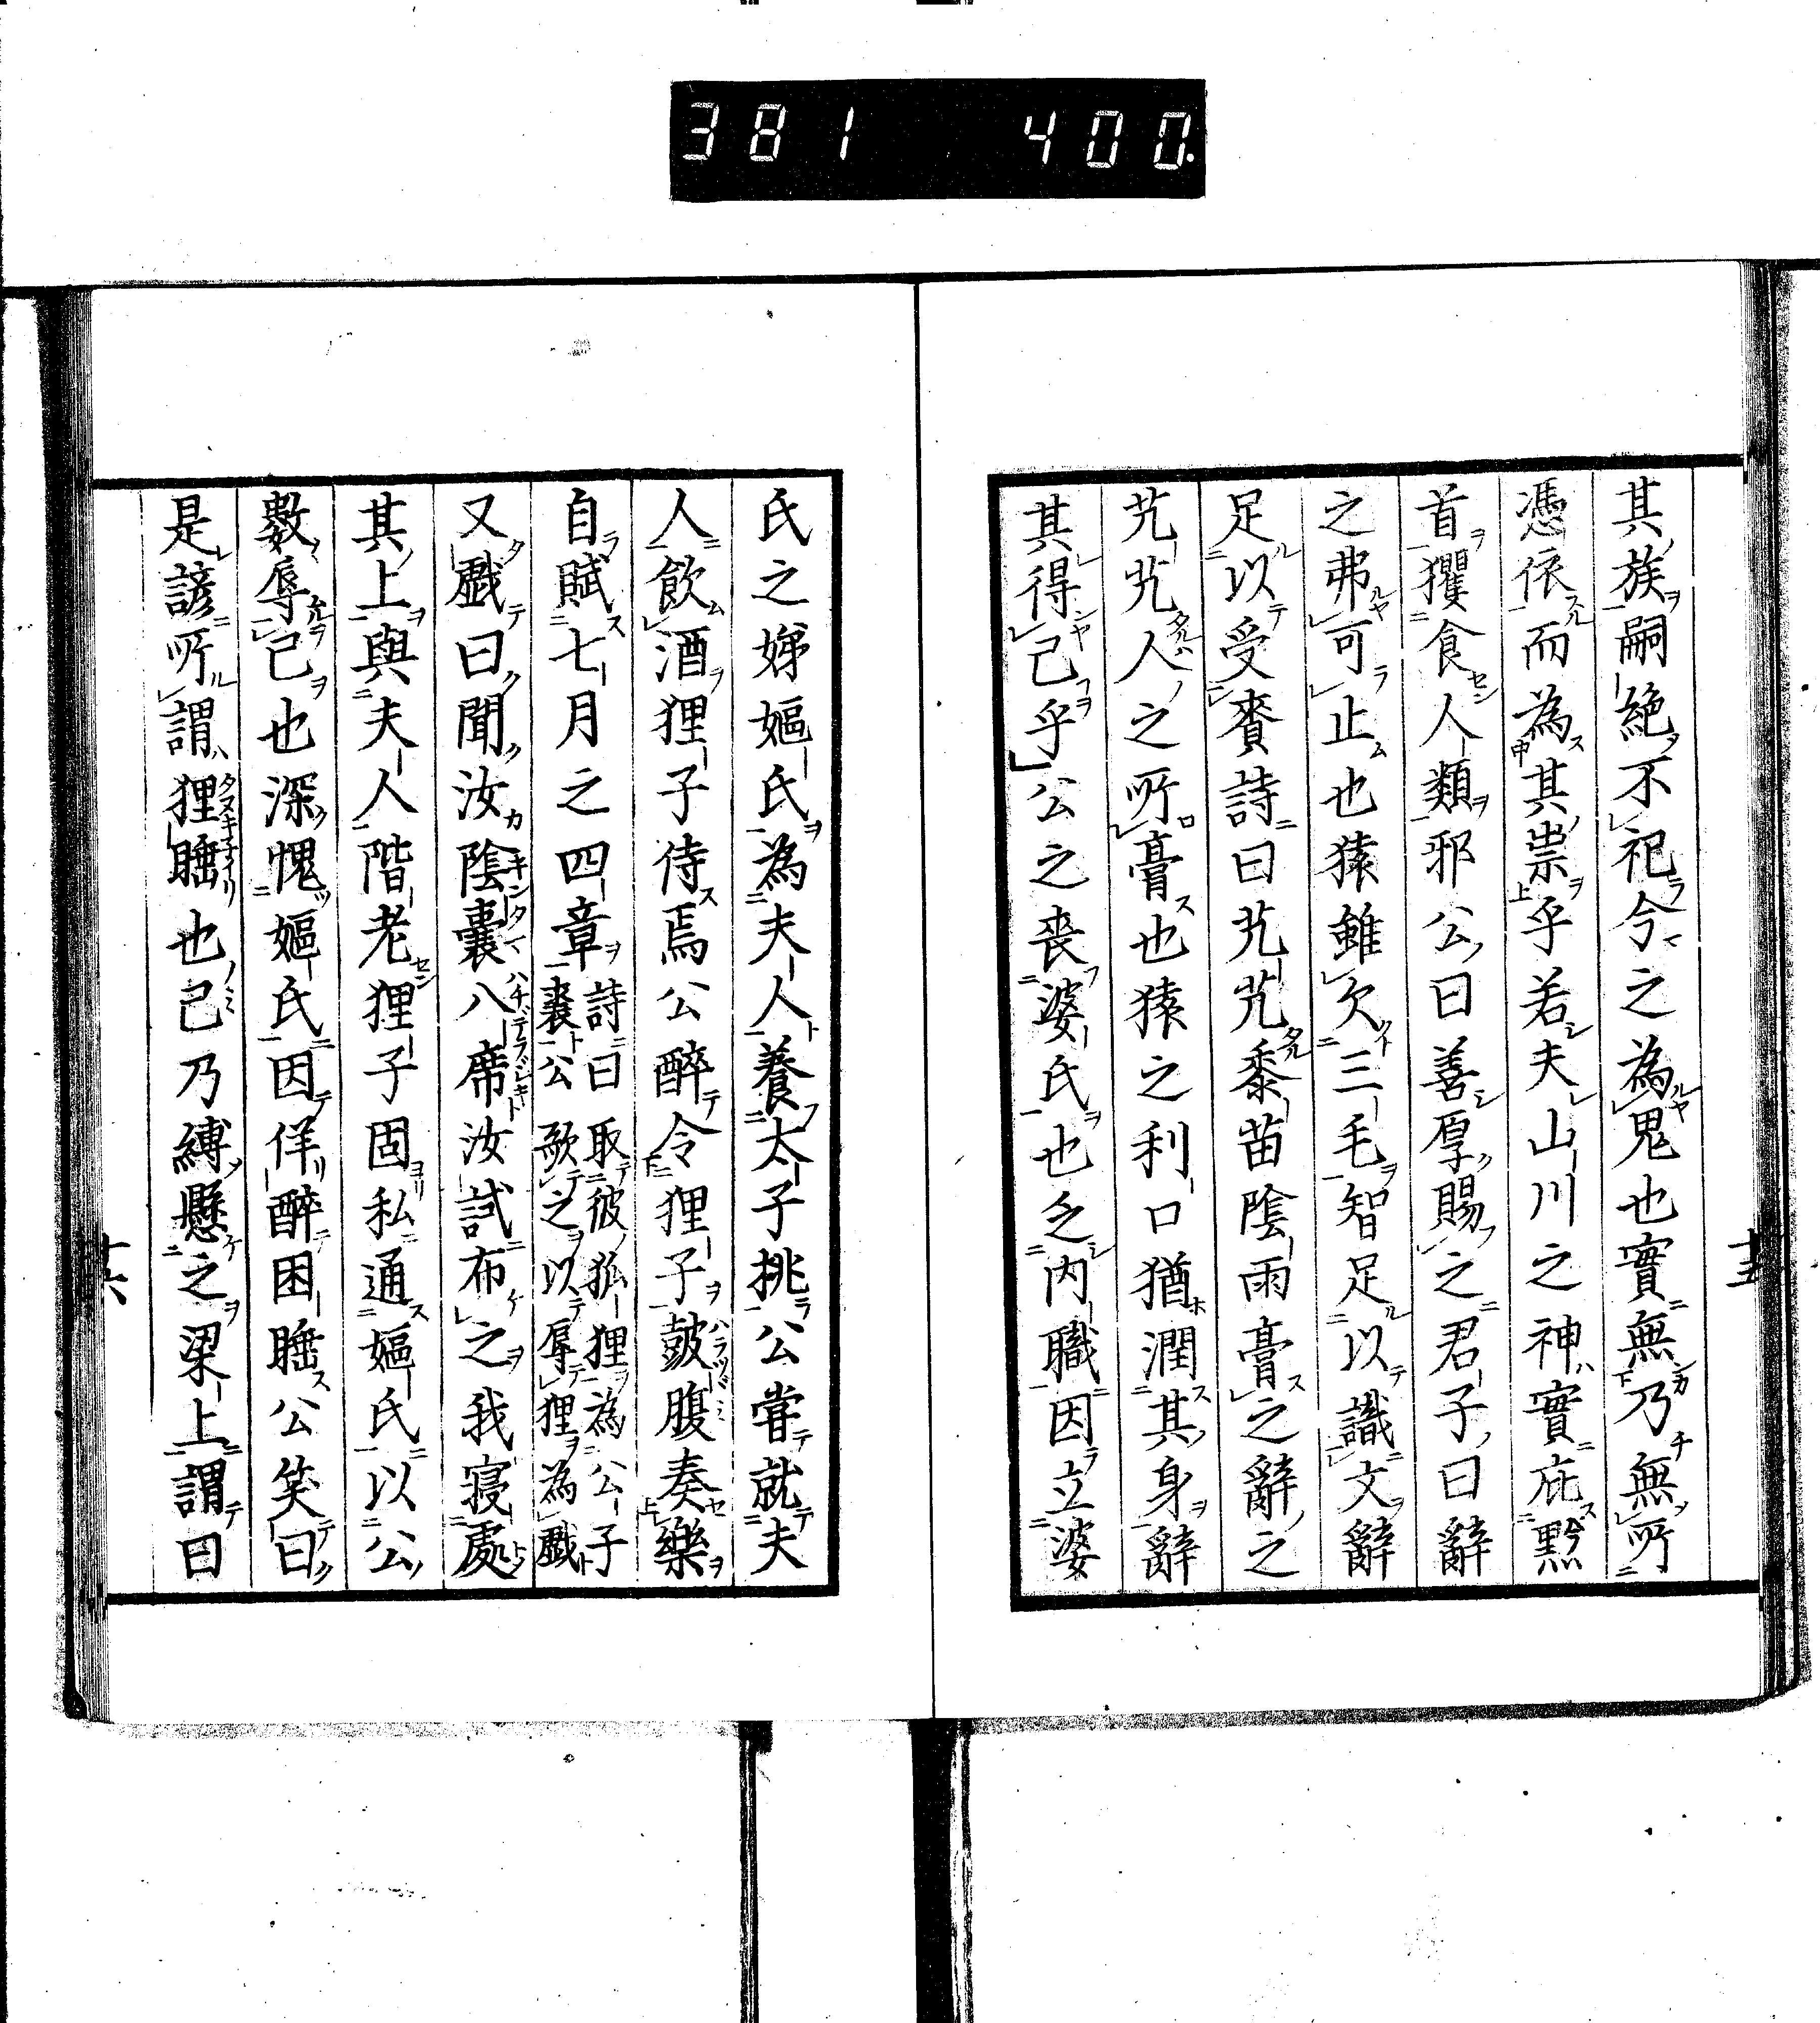 381 400.
其族嗣絶不祀今之為鬼也實無乃無所
憑依而為其祟乎若夫山川之神實庇黔
首玃食人類邪公曰善厚賜之君子曰辭
之弗可止也猿雖欠三毛智足以識文辭
足以受賚詩曰芃芃黍苗陰雨膏之辭之
芃芃人之所膏也猿之利口猶潤其身辭
其得已乎公之喪婆氏也乏内職因立婆
十五
氏之娣嫗氏為夫人養太子挑公嘗就夫
人飲酒狸子侍焉公醉令狸子皷腹奏樂
自賦七月之四章詩曰取彼狐狸為公子裘公歌之以辱狸為戲
又戲曰聞汝陰囊八席汝試布之我寝處
其上與夫人階老狸子固私通嫗氏以公
數辱己也深愧嫗氏因佯醉困睡公笑曰
是諺所謂狸睡也已乃縛懸之梁上謂曰
十六